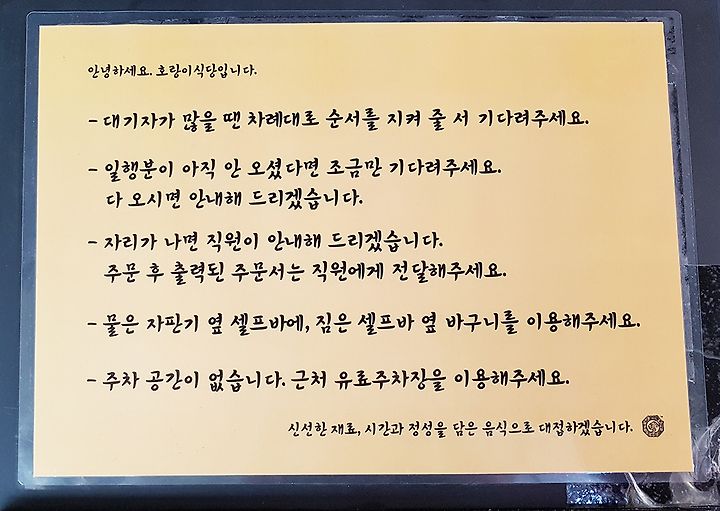 안녕하세요. 호랑이식당입니다.
- 대기자가 많을 땐 차례대로 순서를 지켜 줄 서 기다려주세요.
- 일행분이 아직 안 오셨다면 조금만 기다려주세요.
다 오시면 안내해 드리겠습니다.
- 자리가 나면 직원이 안내해 드리겠습니다.
주문 후 출력된 주문서는 직원에게 전달해주세요.
- 물은 자판기 옆 셀프바에, 짐은 셀프바 옆 바구니를 이용해주세요.
- 주차 공간이 없습니다. 근처 유료주차장을 이용해주세요.
신선한 재료, 시간과 정성을 담은 음식으로 대접하겠습니다.